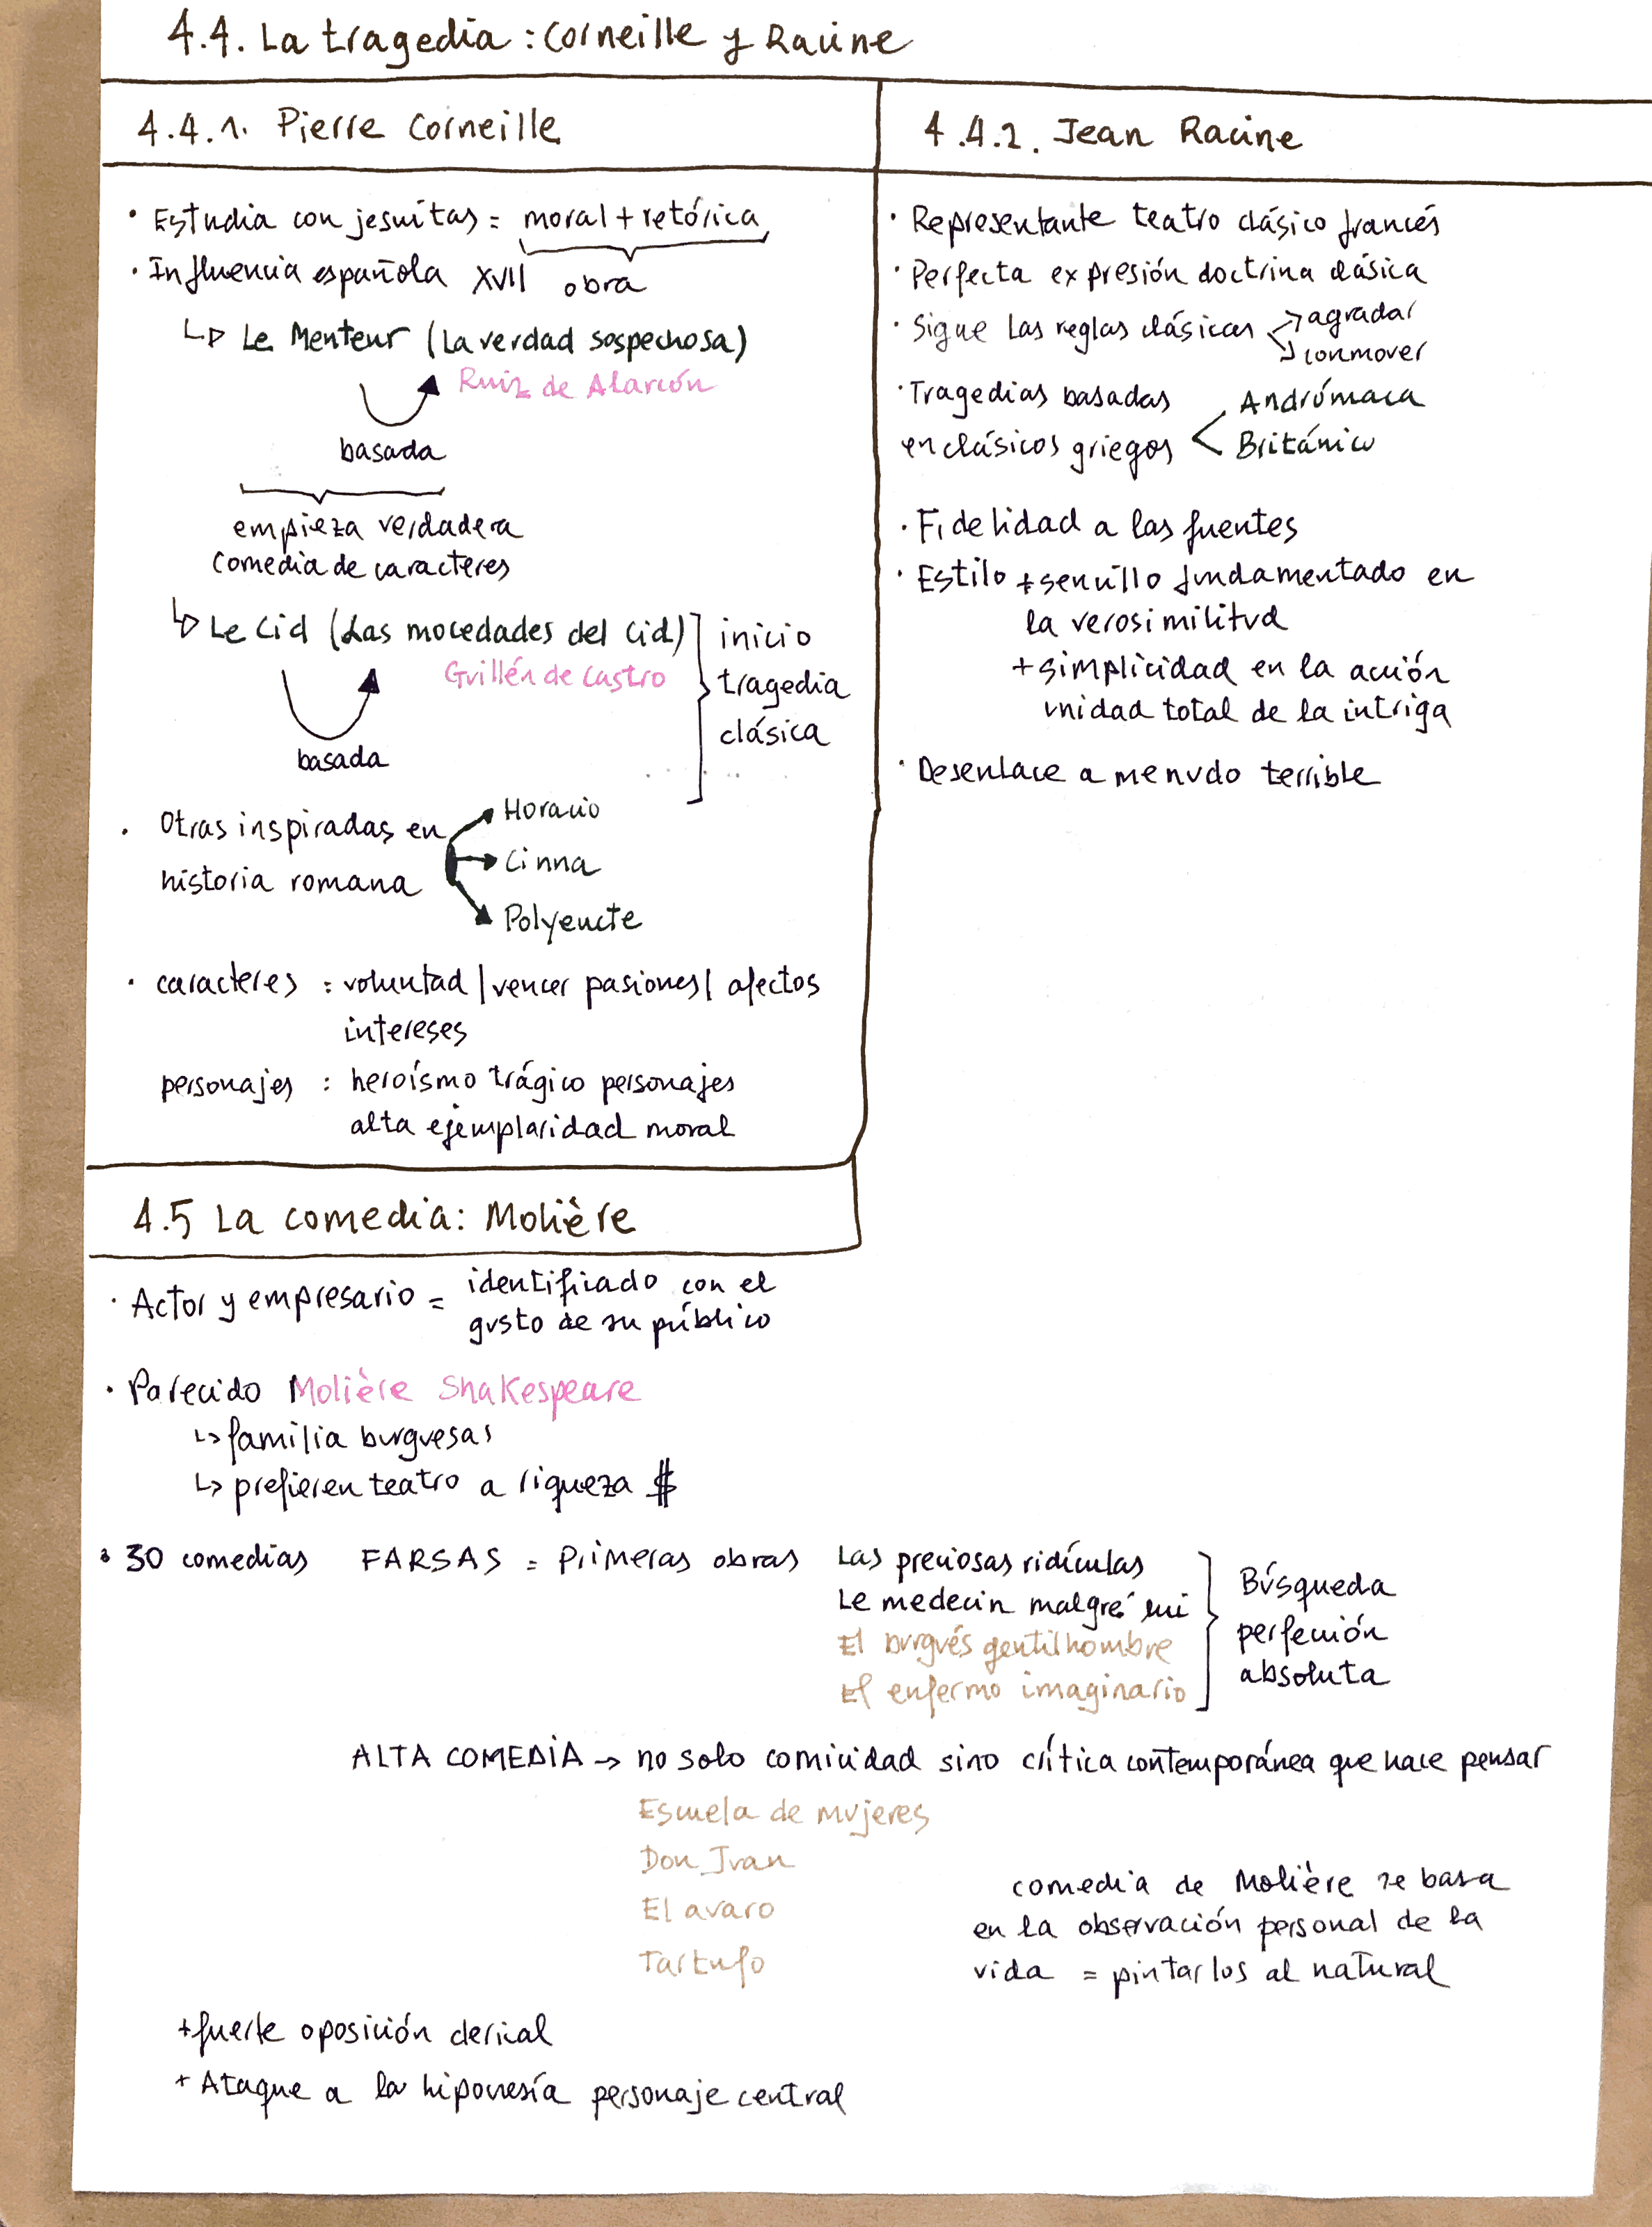 4.4. La tragedia : Corneille y Racine
4.4.1. Pierre Corneille
• Estudia con jesuitas = moral + retórica
• Influencia española XVII obra
↳ Le Menteur (La verdad sospechosa)
Ruiz de Alarcón
basada
empieza verdadera
comedia de caracteres
↳ Le Cid (Las mocedades del Cid)
Guillén de Castro
basada
inicio
tragedia
clásica
• Otras inspiradas en
historia romana
Horacio
Cinna
Polyeucte
• caracteres : voluntad | vencer pasiones | afectos
intereses
personajes : heroísmo trágico personajes
alta ejemplaridad moral
4.4.2. Jean Racine
• Representante teatro clásico francés
• Perfecta expresión doctrina clásica
• Sigue las reglas clásicas
agradar
conmover
• Tragedias basadas
en clásicos griegos
Andrómaca
Británico
• Fidelidad a las fuentes
• Estilo + sencillo fundamentado en
la verosimilitud
+ simplicidad en la acción
unidad total de la intriga
• Desenlace a menudo terrible
4.5 La comedia: Molière
• Actor y empresario = identificado con el
gusto de su público
• Parecido Molière Shakespeare
↳ familia burguesas
↳ prefieren teatro a riqueza $
• 30 comedias FARSAS = Primeras obras Las preciosas ridículas
Le medecin malgré lui
El burgués gentilhombre
El enfermo imaginario
Búsqueda
perfección
absoluta
ALTA COMEDIA → no solo comicidad sino crítica contemporánea que hace pensar
Escuela de mujeres
Don Juan
El avaro
Tartufo
comedia de Molière se basa
en la observación personal de la
vida = pintarlos al natural
+ fuerte oposición clerical
+ Ataque a la hipocresía personaje central